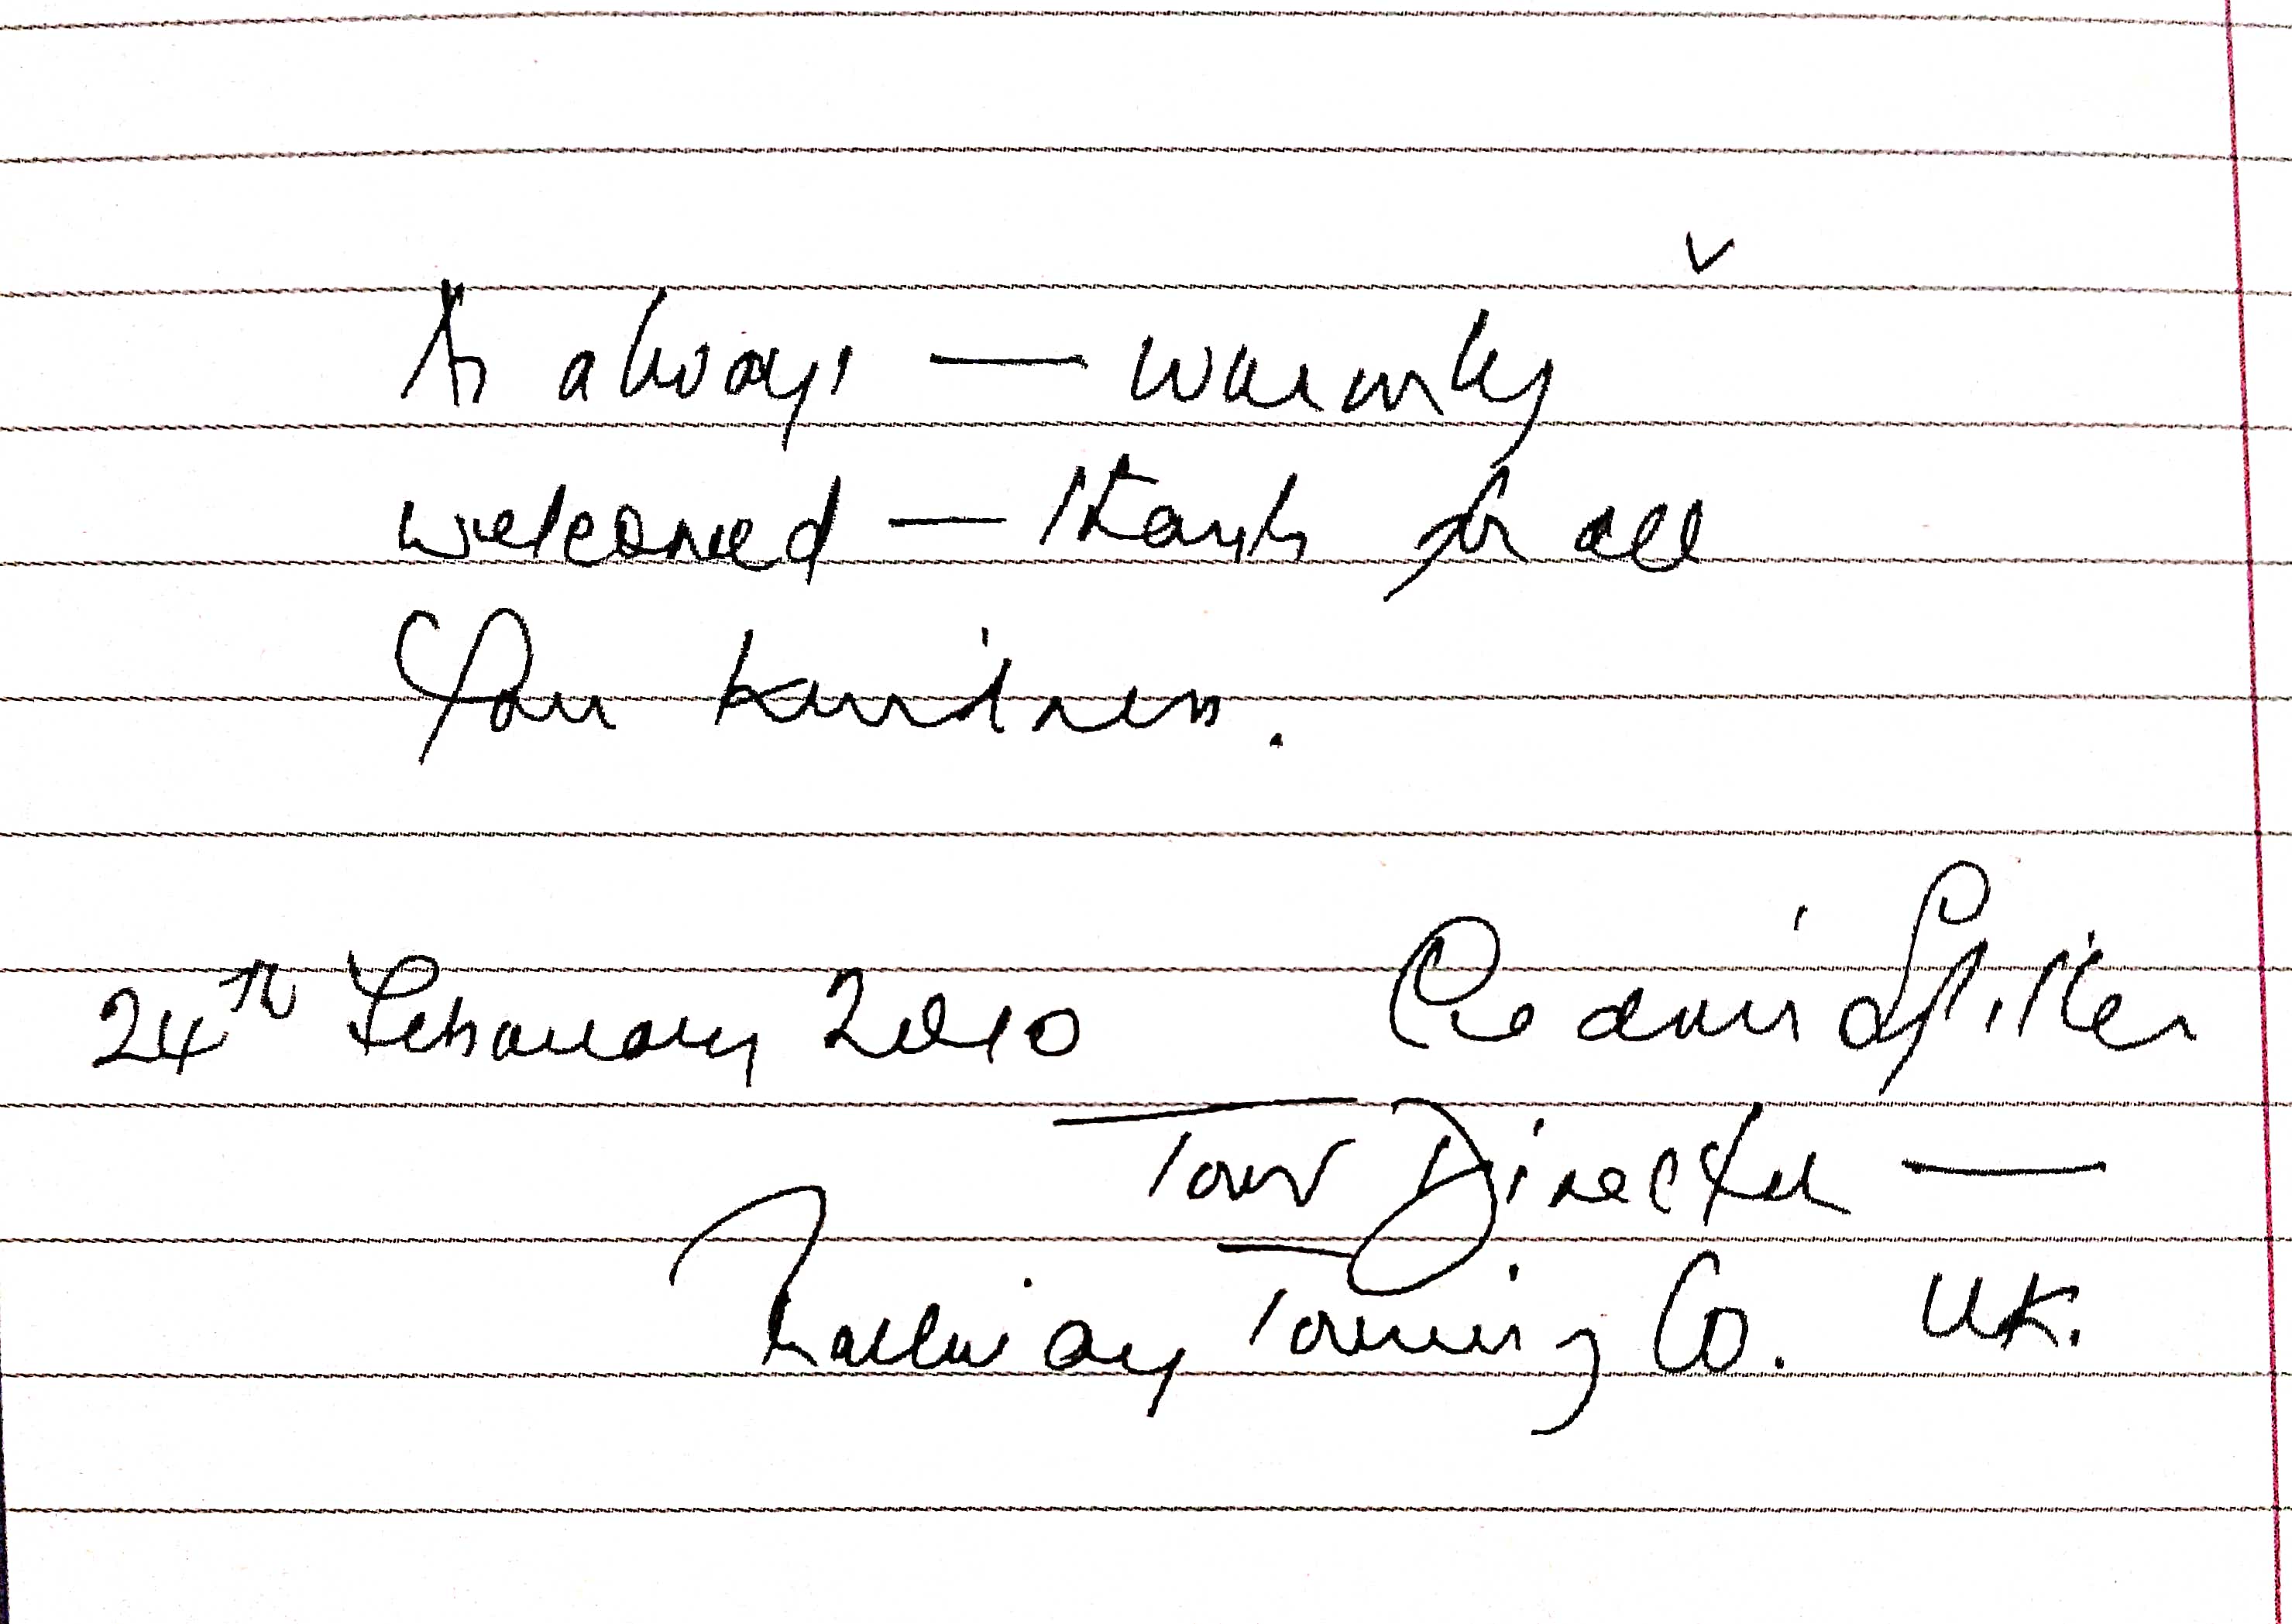 As always — warmly
welcomed — thanks for all
your kindness.
24th February 2010
Tour Director —
Railway Touring Co. UK.